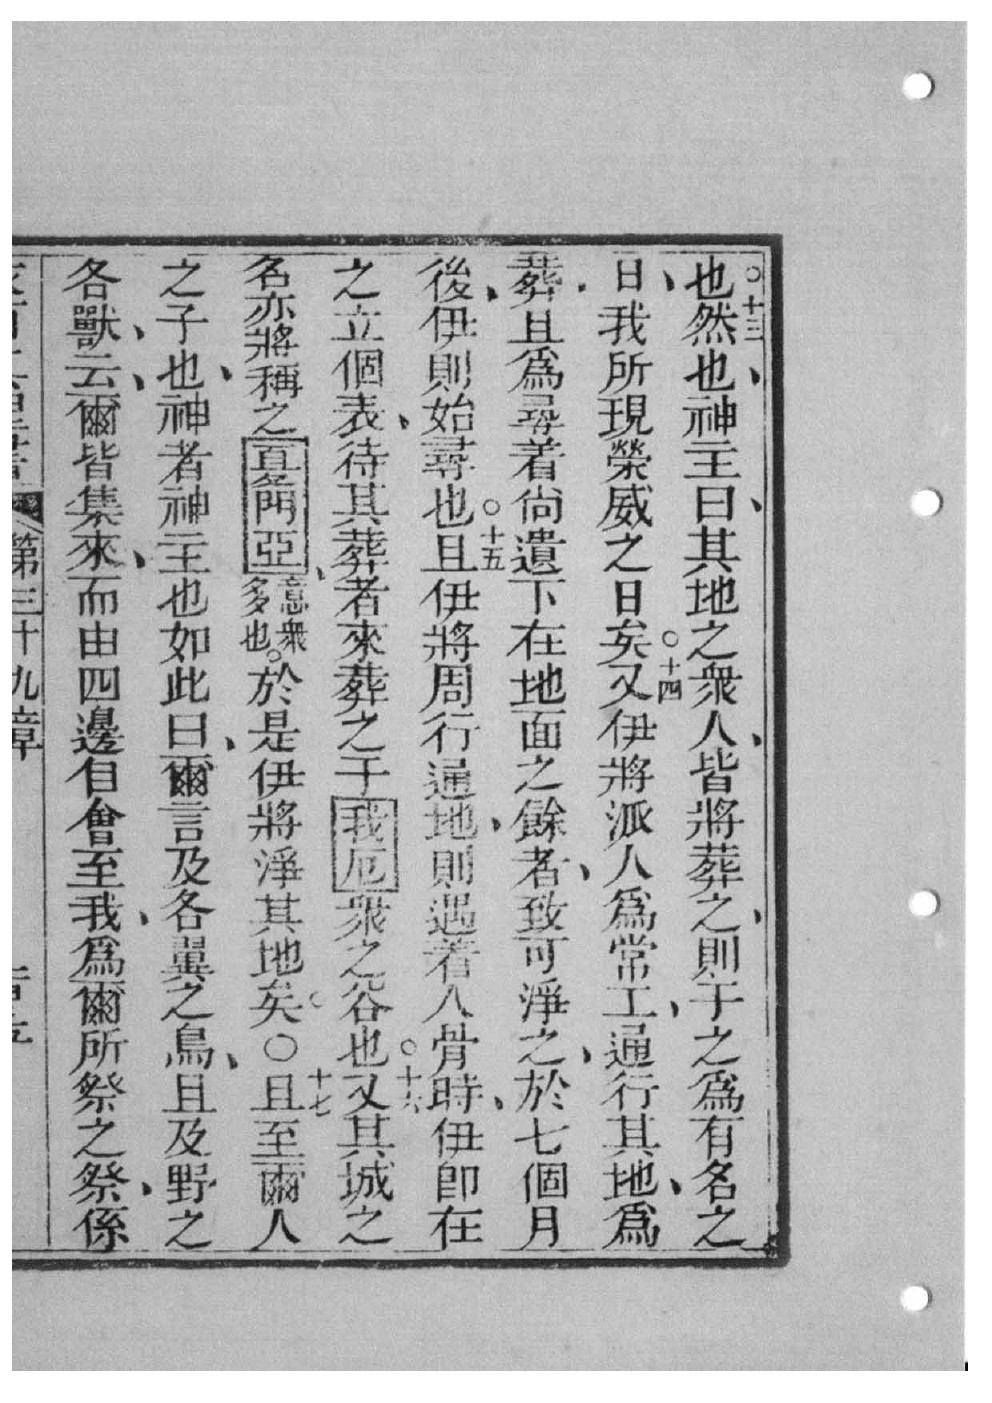 也然也、神主曰、其地之衆人、皆將葬之、則于之爲有名之
日、我所現榮威之日矣。十四又伊將派人爲常工、通行其地、爲
葬、且爲尋着尙遺下在地面之餘者、致可淨之、於七個月
後、伊則始尋也。十五且伊將周行通地、則遇着人骨時、伊卽在
之立個表、待其葬者來葬之于我厄衆之谷也。十六又其城之
名亦將稱之夏門亞、意衆多也。於是伊將淨其地矣。○十七且至爾人
之子也、神者神主也如此曰、爾言及各翼之鳥、且及野之
各獸、云、爾皆集來、而由四邊自會至我、爲爾所祭之祭、係
第三十九章